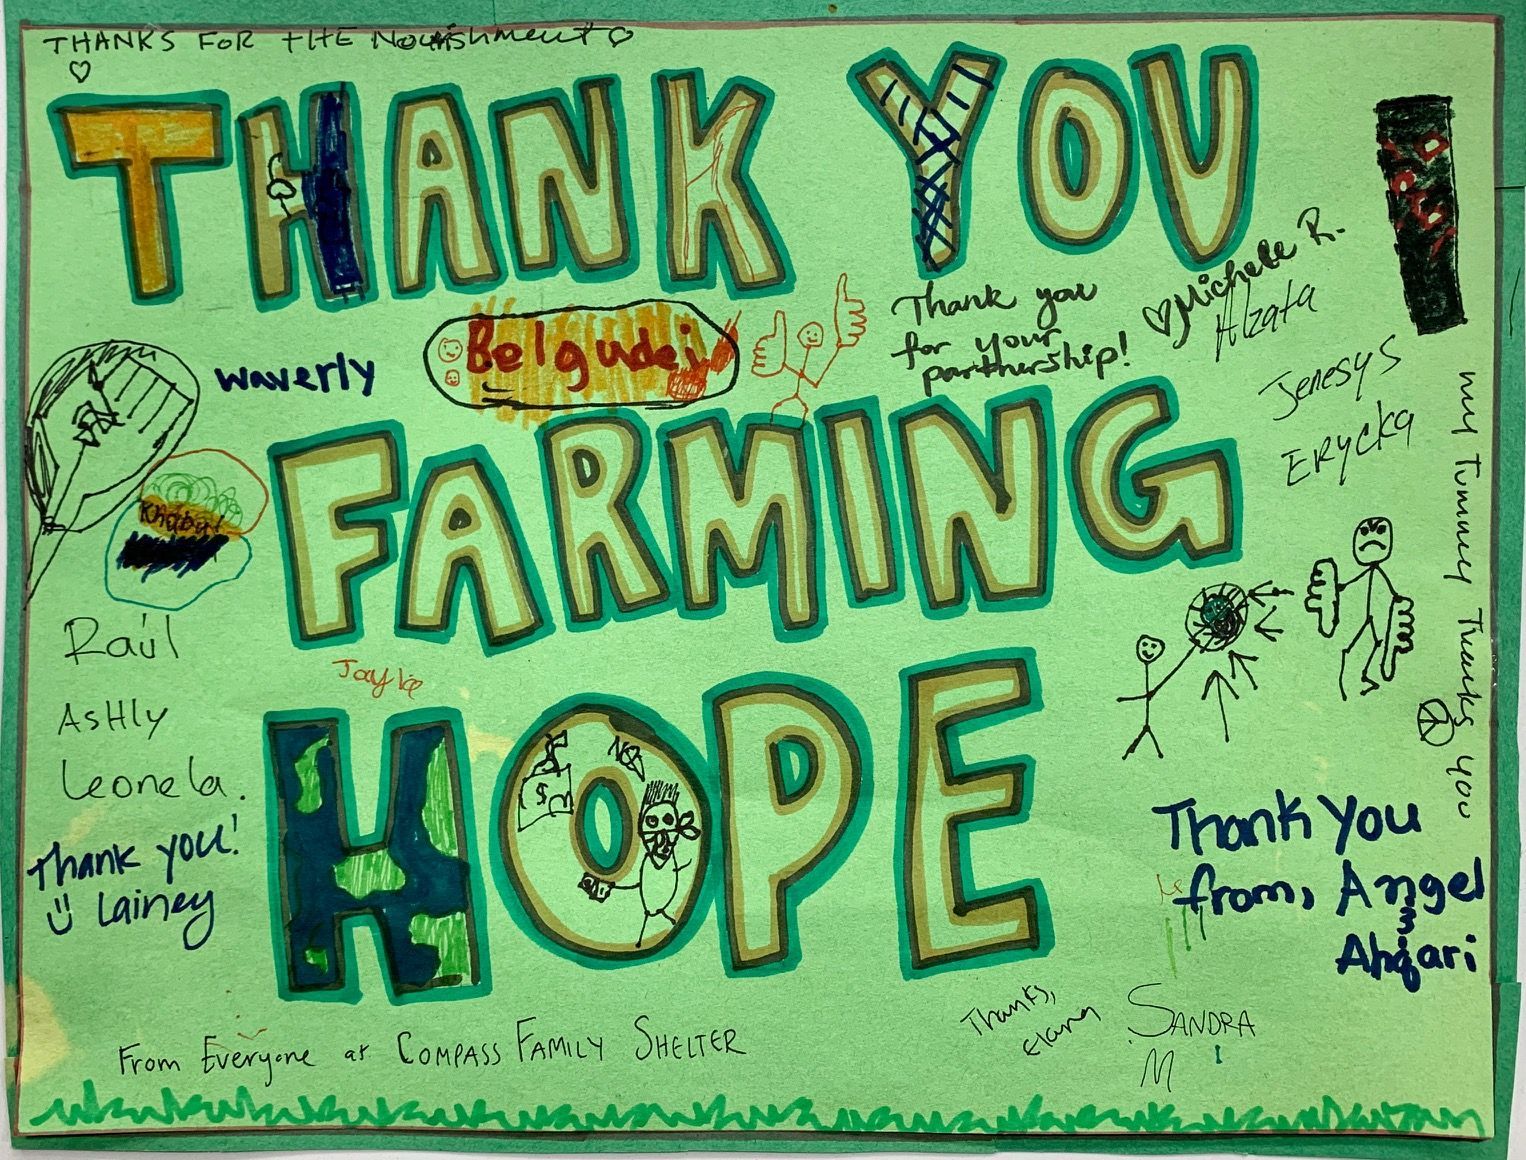 THANKS FOR THE Nourishment
THANK YOU
Thank you
for your
partnership!
Michele R.
Alzata
Waverly
Belgudei
Jenesys
ERYCKA
FARMING
my tummy thanks you
Raúl
Jayla
ASHLY
Leonela.
HOPE
$
NO
Thank you!
Lainey
Thank You
from, Angel
&
Ahqari
Thanks,
SANDRA
M
From Everyone at COMPASS FAMILY SHELTER